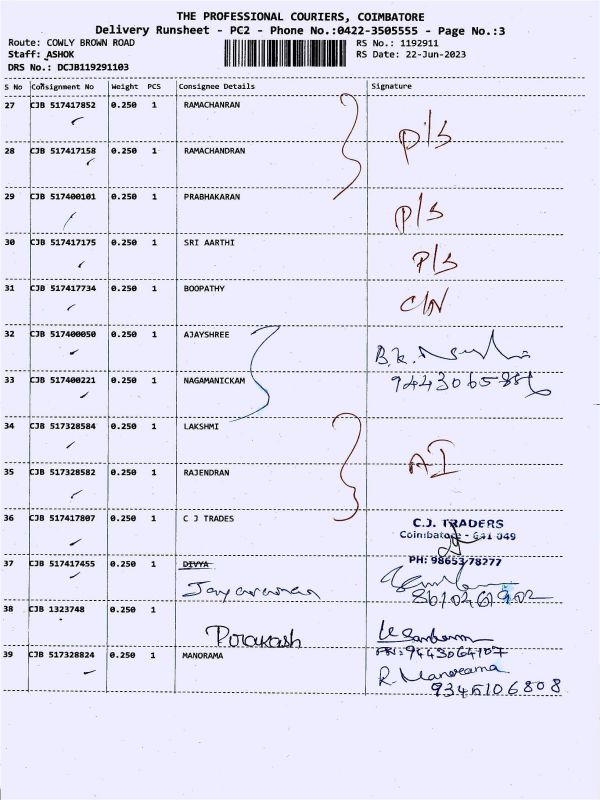 THE PROFESSIONAL COURIERS, COIMBATORE
Delivery Runsheet - PC2 - Phone No.:0422-3505555 - Page No.:3
Route: COWLY BROWN ROAD RS No.: 1192911
Staff: ASHOK RS Date: 22-Jun-2023
DRS No.: DCJB119291103
S No Consignment No Weight PCS Consignee Details Signature
27 CJB 517417852 0.250 1 RAMACHANRAN
P/S
28 CJB 517417158 0.250 1 RAMACHANDRAN
29 CJB 517400101 0.250 1 PRABHAKARAN
P/S
30 CJB 517417175 0.250 1 SRI AARTHI
P/S
31 CJB 517417734 0.250 1 BOOPATHY
C/N
32 CJB 517400050 0.250 1 AJAYSHREE
B.K.
33 CJB 517400221 0.250 1 NAGAMANICKAM
34 CJB 517328584 0.250 1 LAKSHMI
AI
35 CJB 517328582 0.250 1 RAJENDRAN
36 CJB 517417807 0.250 1 C J TRADES
C.J. TRADERS
Coimbatore - 641 049
PH: 98653 78277
37 CJB 517417455 0.250 1 DIVYA
Jayaraman
38 CJB 1323748 0.250 1
Pirakash
PH: 9443064107
39 CJB 517328824 0.250 1 MANORAMA
R. Manorama
9345106808